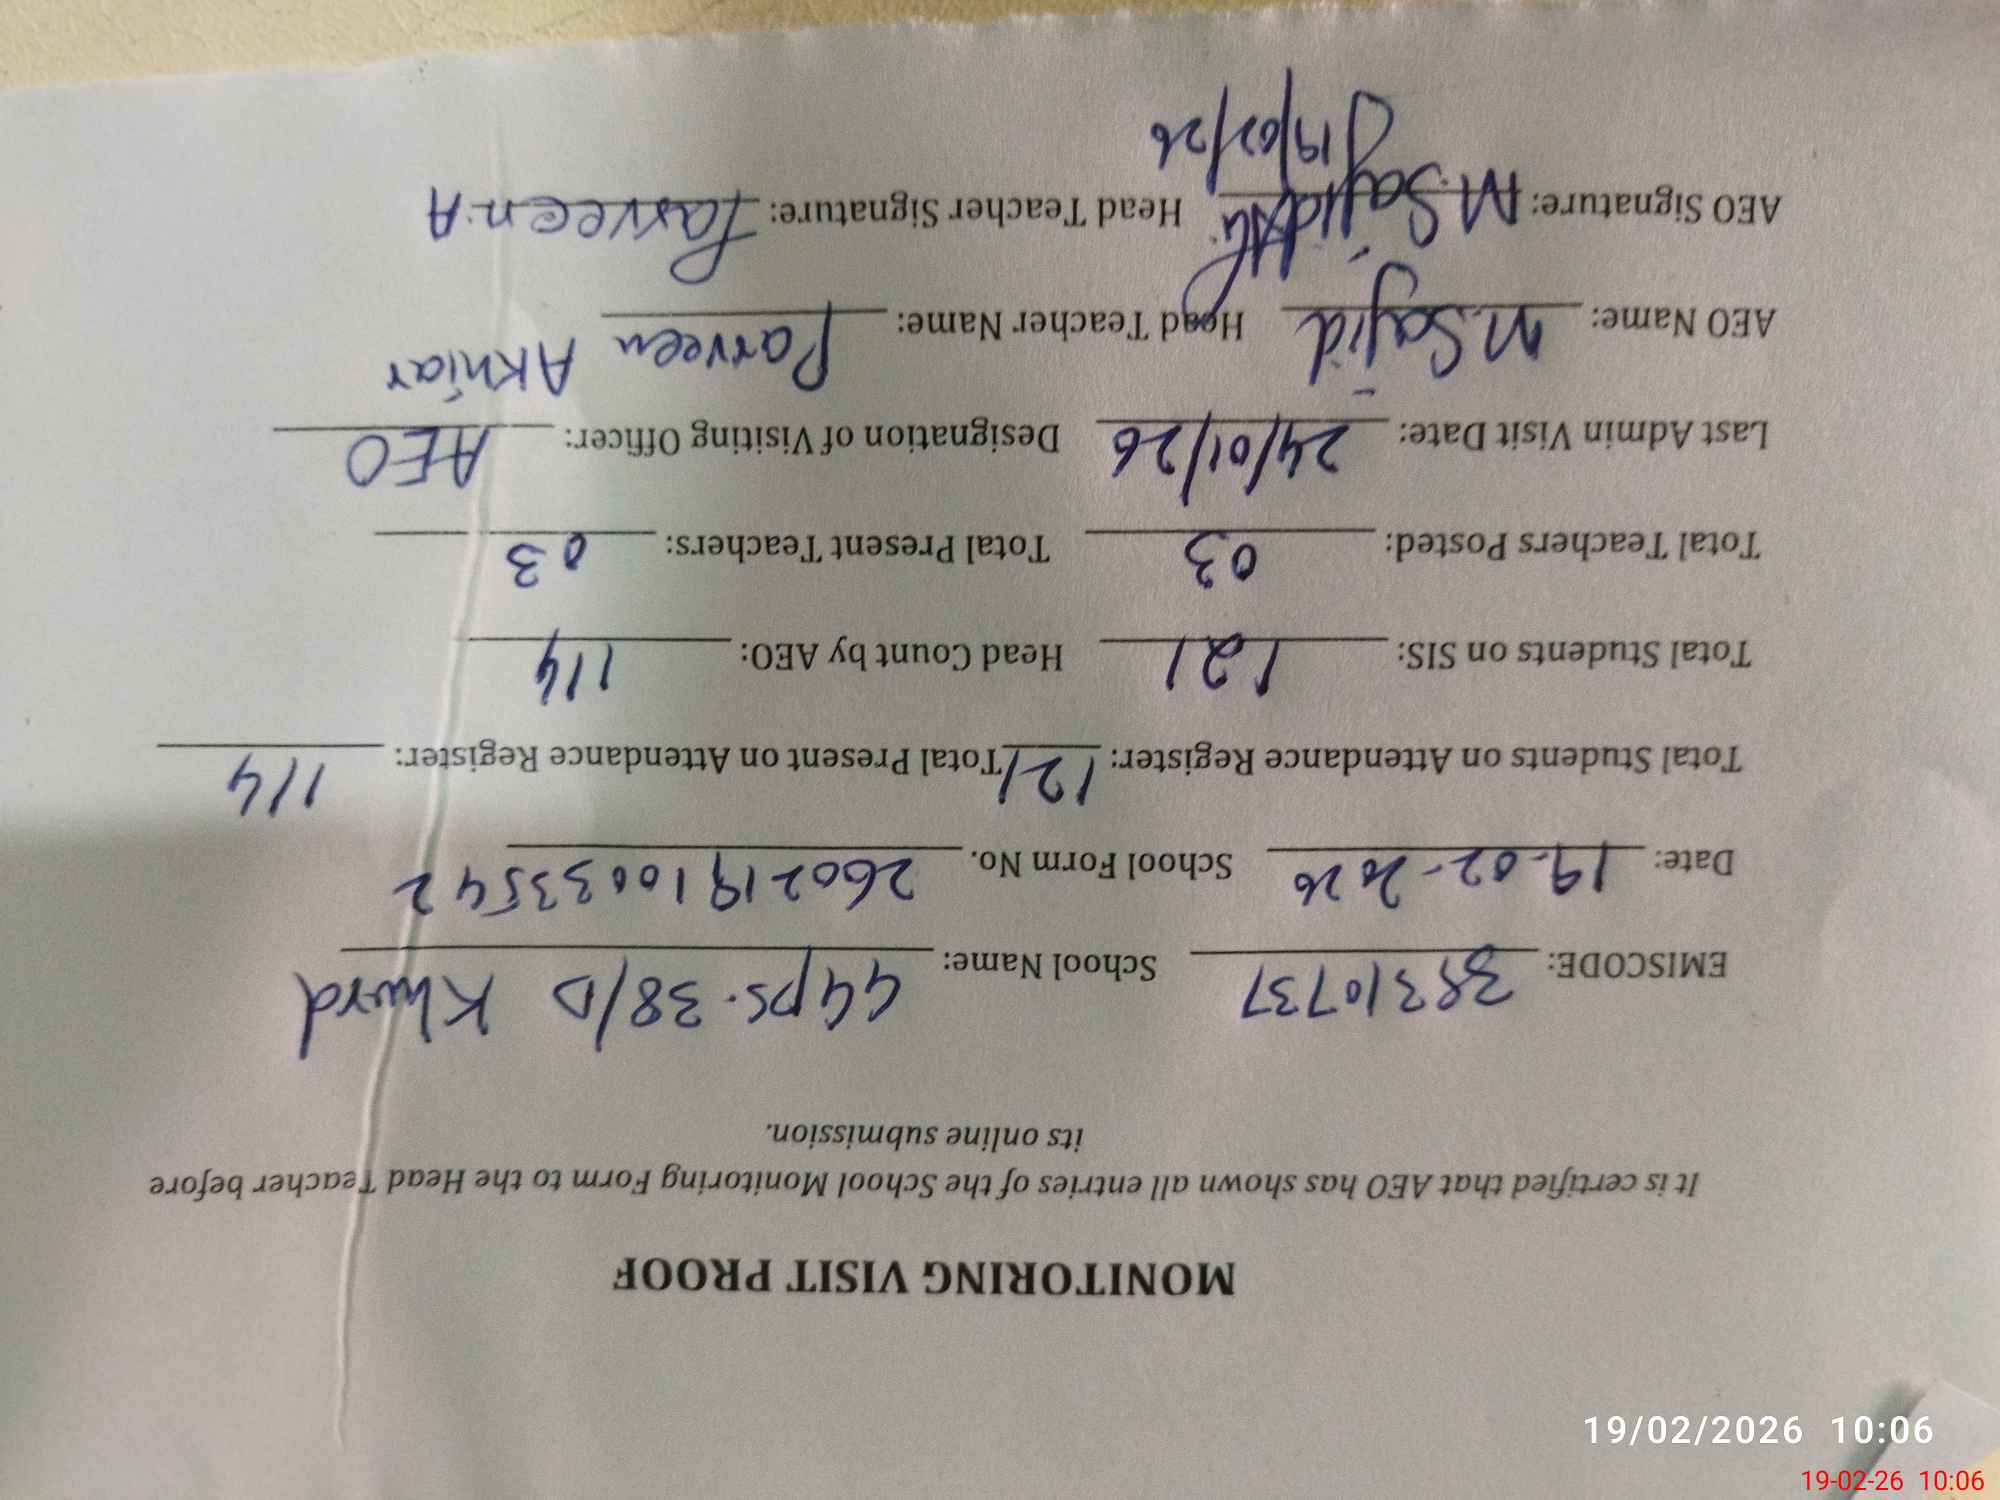 MONITORING VISIT PROOF
It is certified that AEO has shown all entries of the School Monitoring Form to the Head Teacher before
its online submission.
EMISCODE: 38310737 School Name: GGPS. 38/D Khurd
Date: 19-02-2026 School Form No. 26021910033542
Total Students on Attendance Register: 121 Total Present on Attendance Register: 114
Total Students on SIS: 121 Head Count by AEO: 114
Total Teachers Posted: 03 Total Present Teachers: 03
Last Admin Visit Date: 24/01/26 Designation of Visiting Officer: AEO
AEO Name: M.Sajid Head Teacher Name: Parveen Akhtar
AEO Signature: M.Sajid Ali Head Teacher Signature: Parveen.A
19/02/26
19/02/2026 10:06
19-02-26 10:06